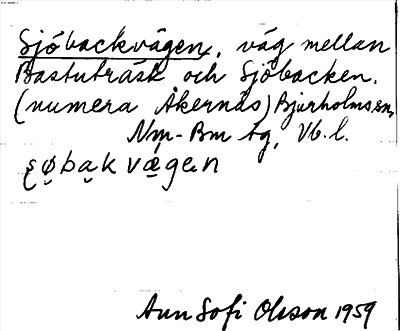 Sjöbackvägen, väg mellan
Bastuträsk och Sjöbacken.
(numera Åkernäs) Bjurholms sn,
Nm-Bm tg, Vb. l.
ʂø̯ba̯kvæ̯gen
Ann Sofi Olsson 1959